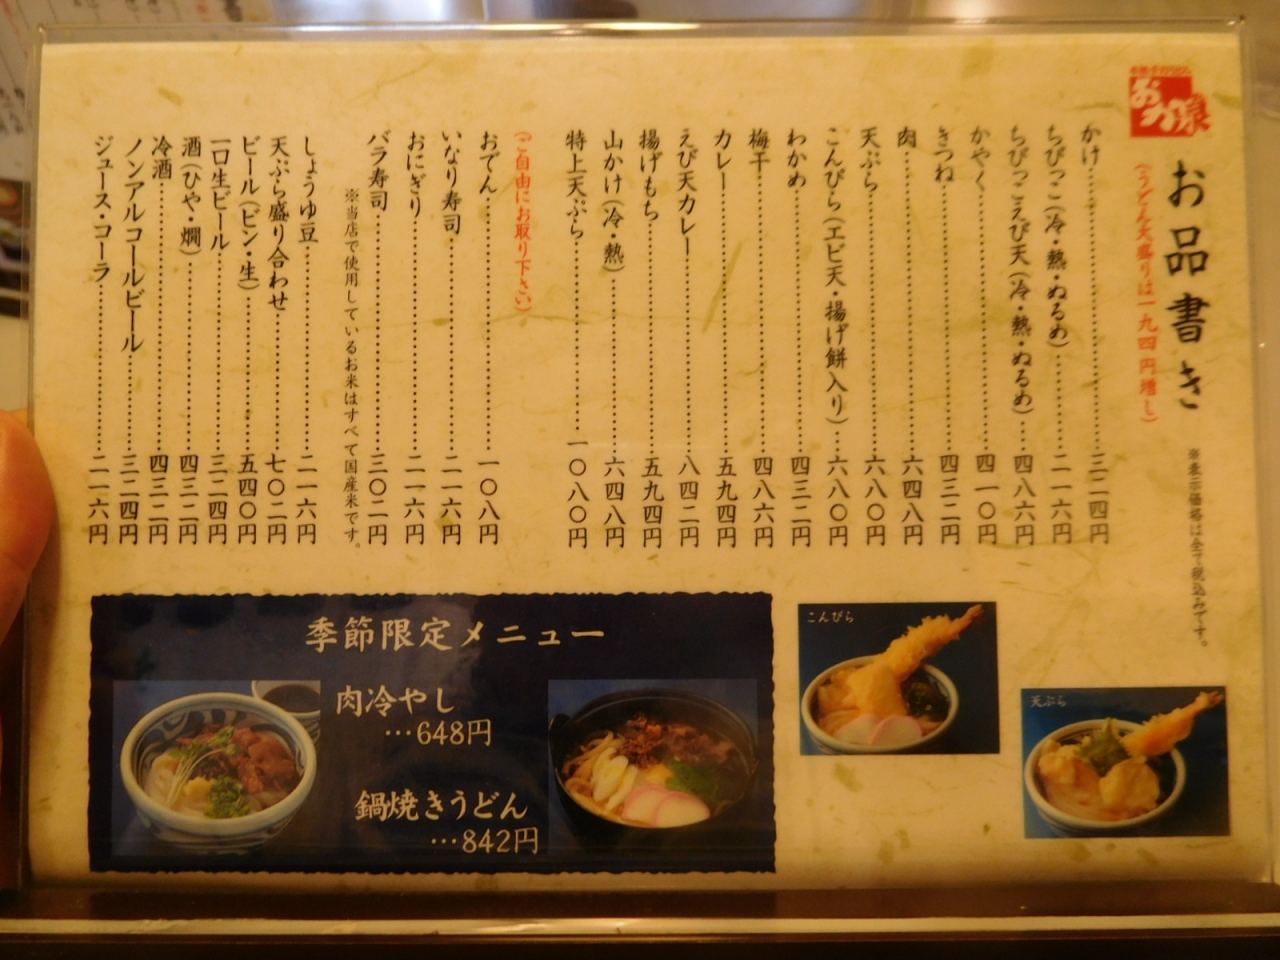 お品書き
(うどん大盛りは一九四円増し)
※表示価格は全て税込みです。
かけ…三二四円
ちびっこ(冷・熱・ぬるめ)…二一六円
ちびっこえび天(冷・熱・ぬるめ)…四八六円
かやく…四一〇円
きつね…四三二円
肉…六四八円
天ぷら…六八〇円
こんぴら(エビ天・揚げ餅入り)…六八〇円
わかめ…四三二円
梅干…四八六円
カレー…五九四円
えび天カレー…八四二円
揚げもち…五九四円
山かけ(冷・熱)…六四八円
特上天ぷら…一〇八〇円
(ご自由にお取り下さい)
おでん…一〇八円
いなり寿司…二一六円
おにぎり…二一六円
バラ寿司…三〇二円
※当店で使用しているお米はすべて国産米です。
しょうゆ豆…二一六円
天ぷら盛り合わせ…七〇二円
ビール(ビン・生)…五四〇円
一口生ビール…三二四円
酒(ひや・燗)…四三二円
冷酒…四三二円
ノンアルコールビール…三二四円
ジュース・コーラ…二一六円
季節限定メニュー
肉冷やし
…648円
鍋焼きうどん
…842円
こんぴら
天ぷら